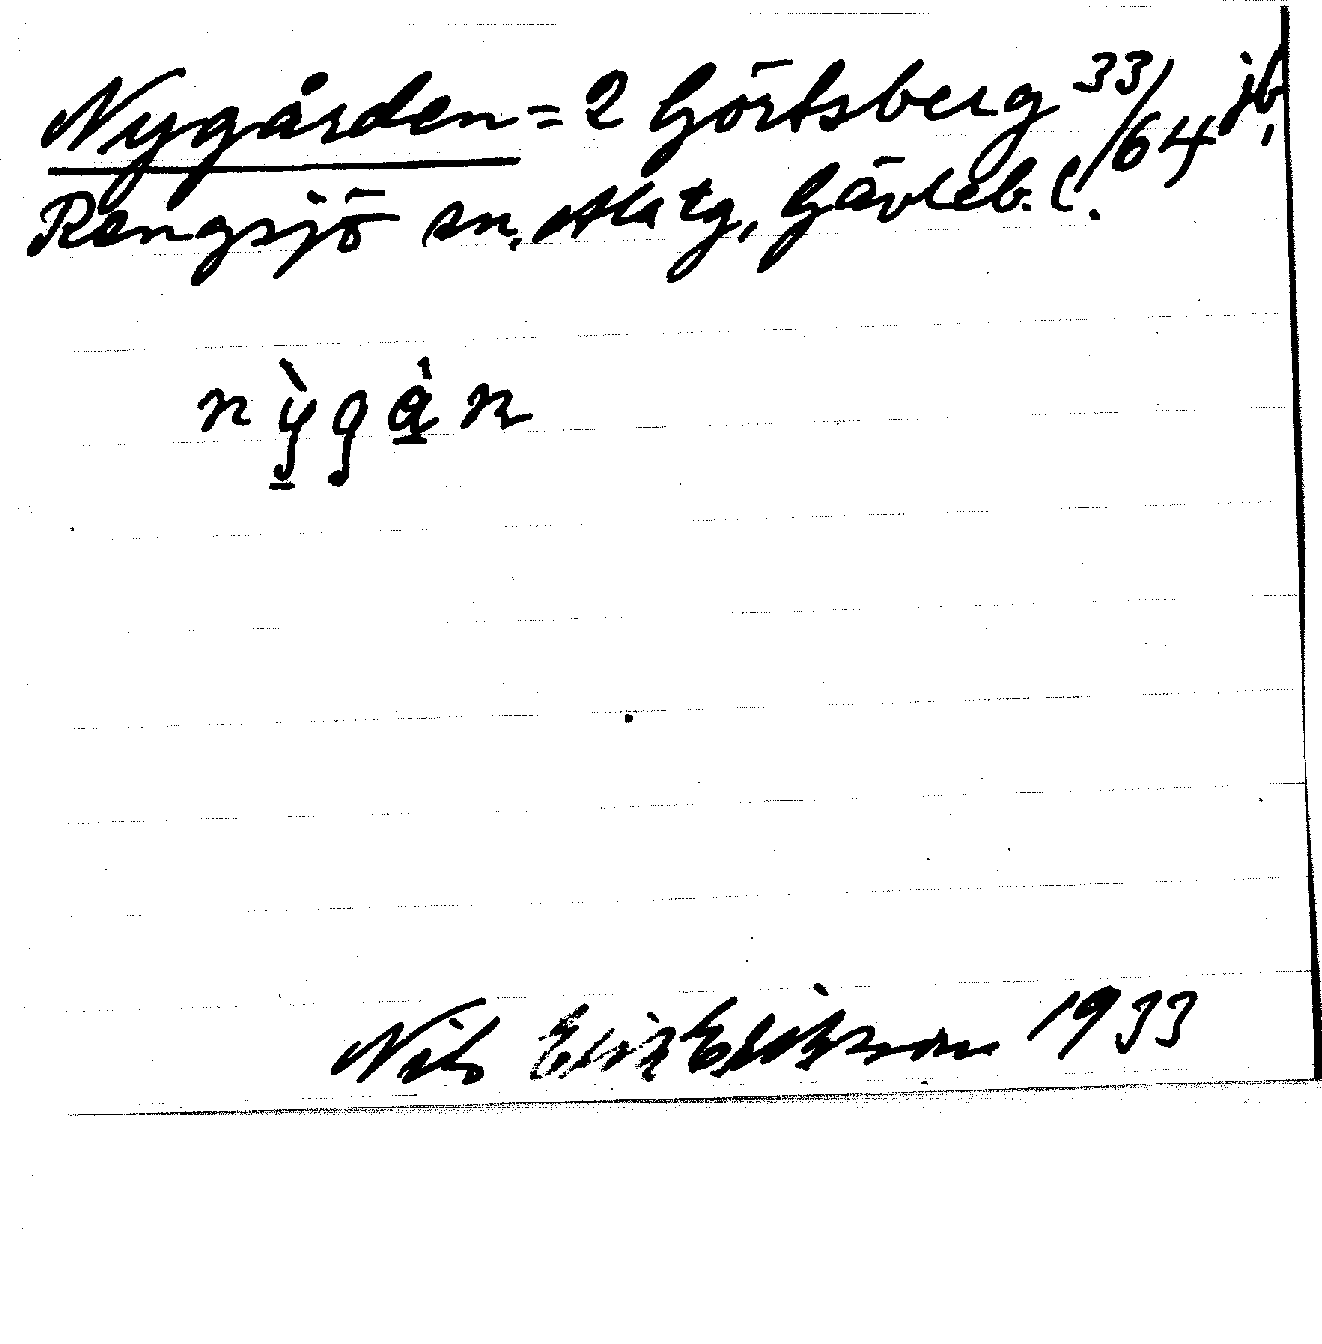 Nygården = 2 Görtsberg 33/64 jb,
Rengsjö sn, Ala tg, Gävleb. l.
nỳgàn
Nils Eric Erikson 1933